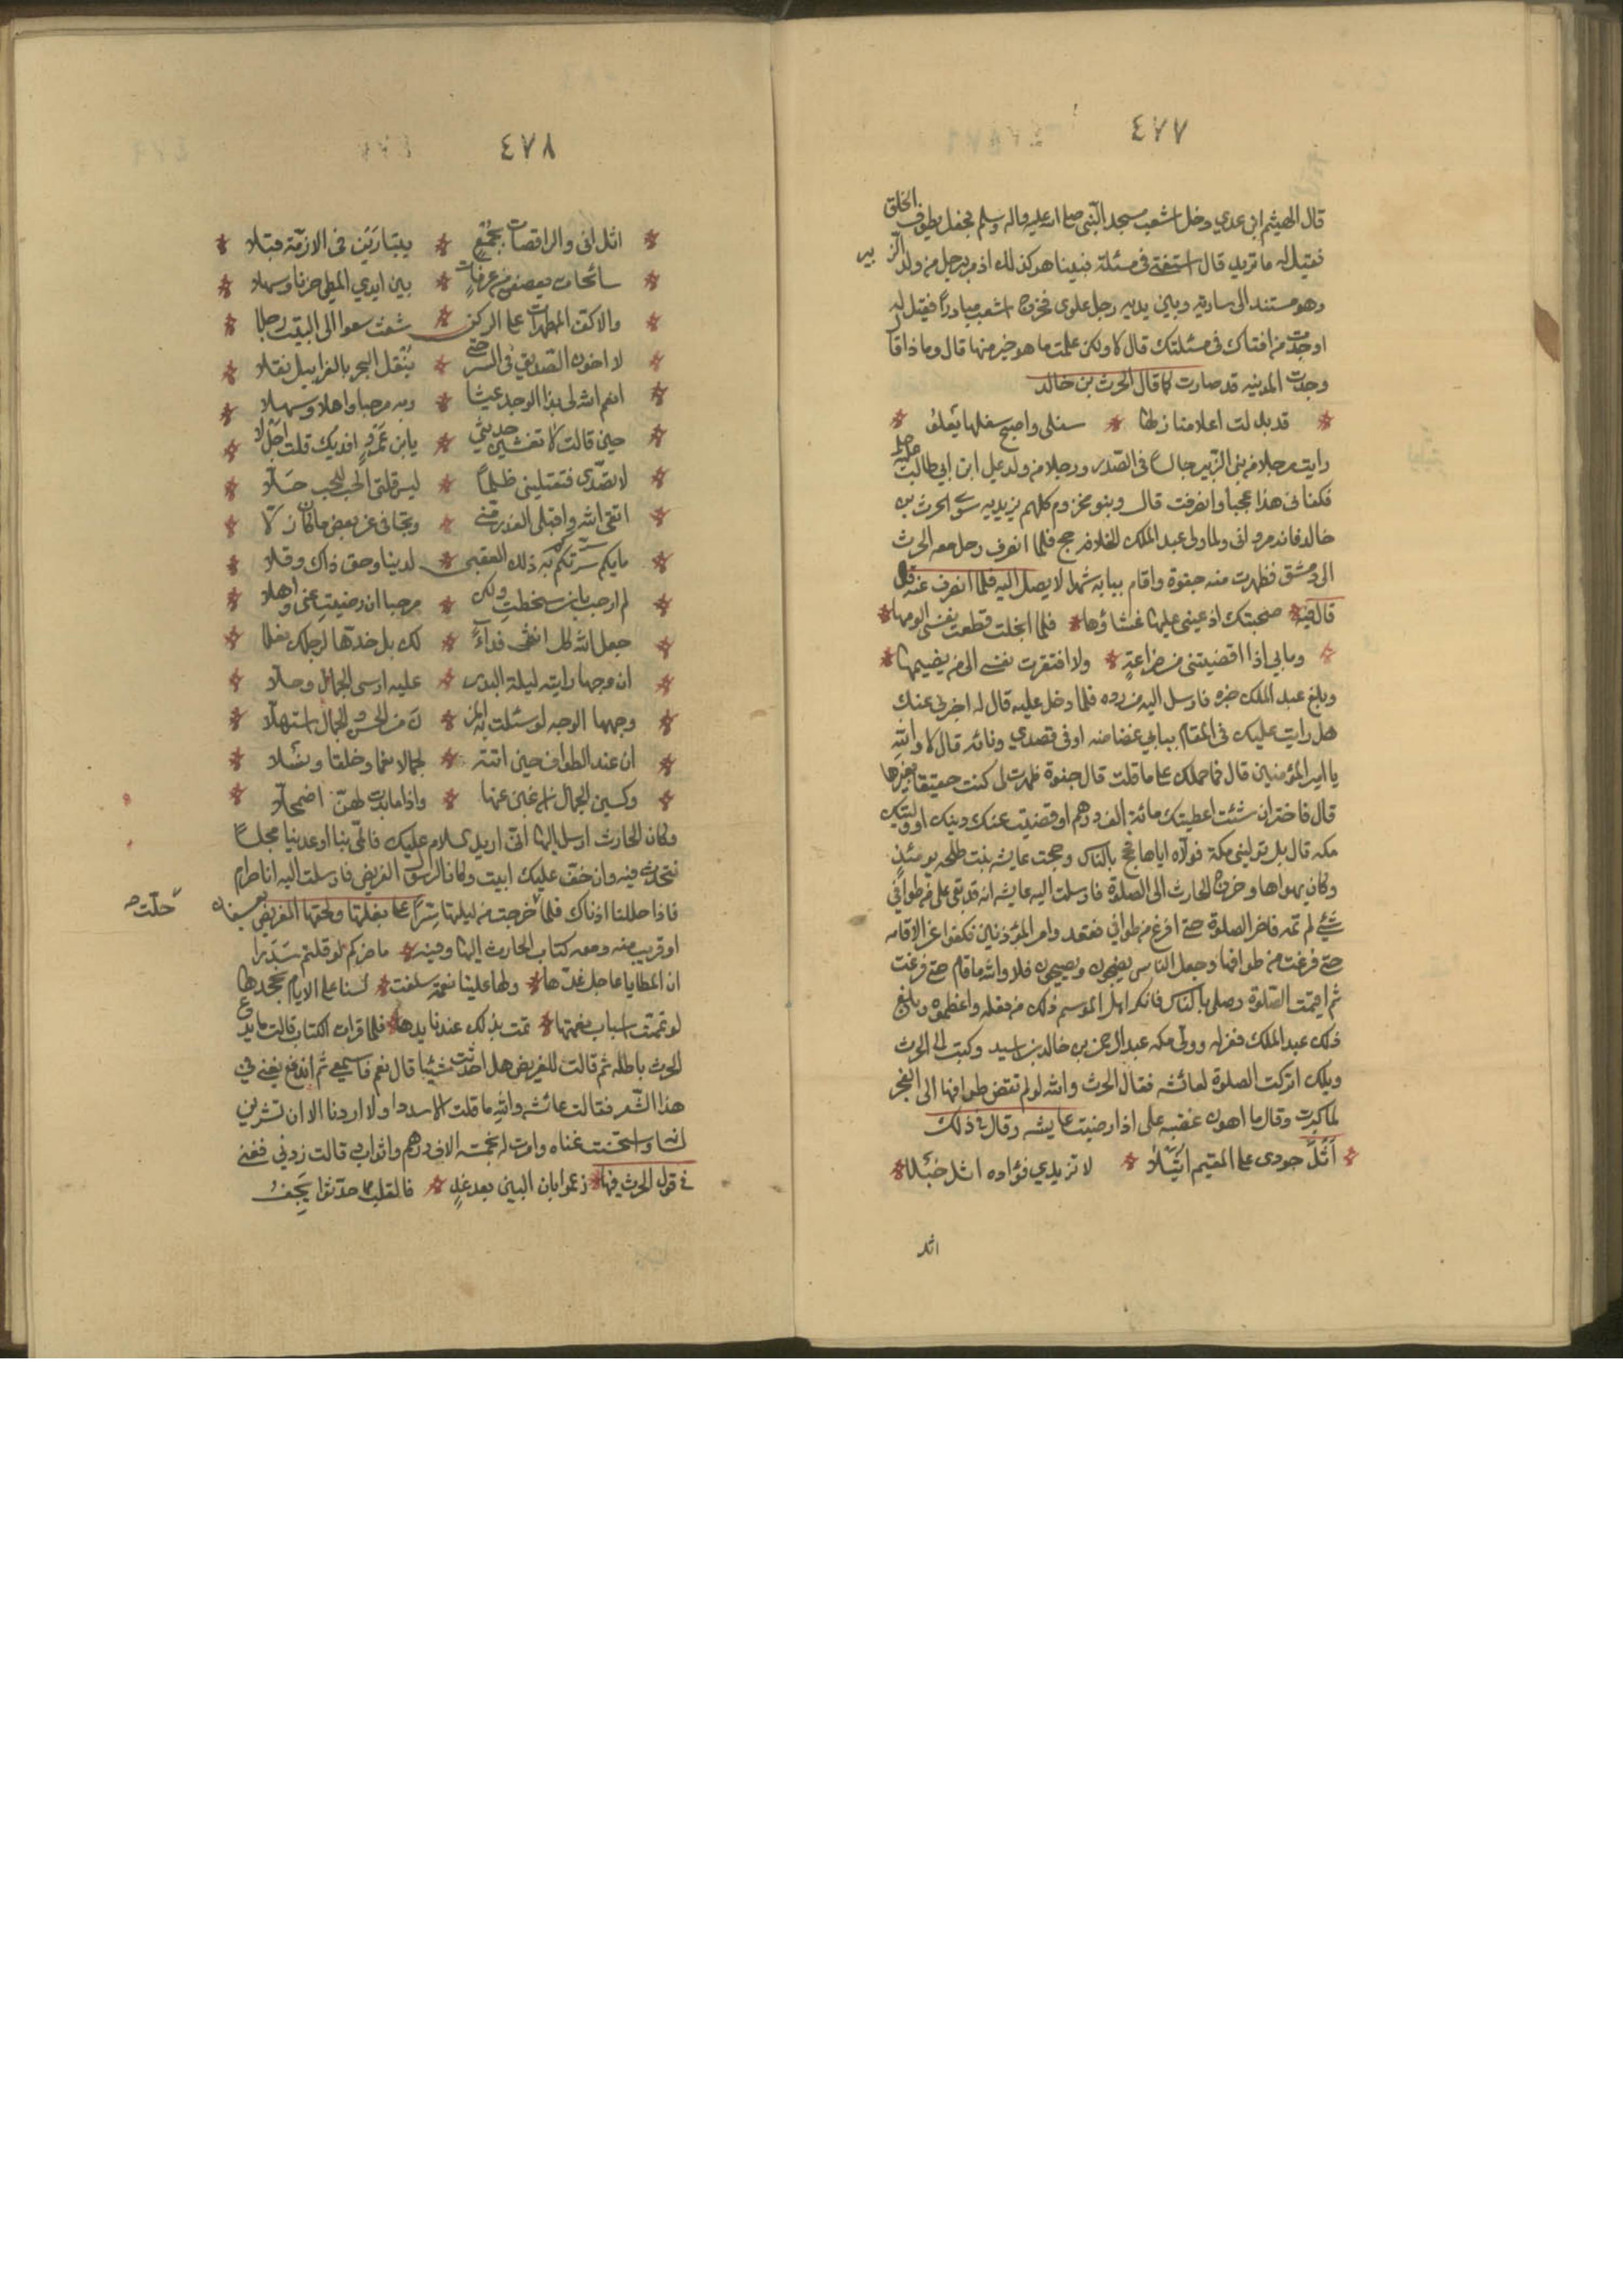 ٤٧٧
قال الهيثم ابن عدي دخل اشعب مسجد النبي صلى الله عليه واله وسلم فجعل يطوف الخلق
فقيل له ما تريد قال استفتى في مسئلة فبينا هو كذلك اذ مر برجل من ولد الزبير
وهو مستند الى سارية وبين يديه رجل علوى فخرج اشعب مبادرا فقيل له
اوجدت من افتاك في مسئلتك قال لا ولكن علمت ما هو خير منها قال وما ذا قال
وجدت المدينه قد صارت كما قال الحرث بن خالد
قد بدلت اعلا منازلها سفلى واصبح سفلها يعلو
رايت رجلا من بنى الزبير جالسا في الصدر ورجلا من ولد على ابن ابي طالب
فكفا فى هذا عجبا وانصرفت قال وبنو مخزوم كلهم زبيريه سوى الحرث بن
خالد فانه مرواني ولما ولى عبد الملك الخلافه حج فلما انصرف رحل معه الحرث
الى دمشق فظهرت منه جفوة واقام ببابه شهرا لا يصل اليه فلما انصرف عنه
قال فيه صحبتك اذ عينى عليها غشاؤها فلما انجلت قطعت نفسى الومها
وما بي اذا اقصيتنى من ضراعة ولا افتقرت نفسى الى من يضيمها
وبلغ عبد الملك خبره فارسل اليه من رده فلما دخل عليه قال له اخبرنى عنك
هل رايت عليك فى المقام ببابي غضاضه او في قصدي دنائه قال لا والله
يا امير المؤمنين قال فما حملك على ما قلت قال جفوة ظهرت لى كنت حقيقا بغيرها
قال فاختر ان شئت اعطيتك مائة الف درهم او قضيت عنك دينك او وليتك
مكه قال بل توليني مكة فولاه اياها فحج بالناس وحجت عايشه بنت طلحه يومئذ
وكان يهواها وخرج الحارث الى الصلوة فارسلت اليه عايشه انه قد بقى على من طوافي
شئ لم اتمه فاخر الصلوة حتى افرغ من طوافي فقعد وامر المؤذنين فكفوا عن الاقامه
حتى فرغت من طوافها وجعل الناس يضجون ويصيحون فلا والله ما قام حتى فرغت
ثم اقيمت الصلوة وصلى بالناس فانكر اهل الموسم ذلك من فعله واعظموه وبلغ
ذلك عبد الملك فعزله وولى مكه عبد الرحمن بن خالد بن اسيد وكتب الى الحرث
ويلك اتركت الصلوة لعائشه فقال الحرث والله لو لم تقض طوافها الى الفجر
لما كبرت وقال ما اهون غضبه على اذا رضيت عايشه وقال في ذلك
اثل جودى على المقيم اثيلا لا تزيدي فؤاده اثل خبلا
اثل
٤٧٨
اثل انى والراقصات بجمع يتبارين فى الازمة فتلا
سانحات يعصفن من عرفات بين ايدي المطى حزنا وسهلا
والاكف المطهرات على الركن شعث سعوا الى البيت رجلا
لا اخون الصديق في السر حتى ينقل البحر بالغرابيل نقلا
انعم الله لى بذا الوجه عينا وبه مرحبا واهلا وسهلا
حين قالت لا تفشين حديثى يا ابن عمي افديك قلت اجل لا
لا تصدي فتقتلينى ظلما ليس قتلى الحب للحب حلا
اتقى الله واقبلى العذر منى وتجافى عن بعض ما كان زلا
لدينا وحق ذاك وقلا
لم ارحب بان سخطت ولكن مرحبا ان رضيت عنى واهلا
جعل الله كل انثى فداء لك بل خدها لرجلك نعلا
ان وجها رايته ليلة البدر عليه ارسى الجمال وحلا
وجهها الوجه لو سئلت به المزن من الحسن والجمال استهلا
ان عند الطواف حين اتته لجمالا عما وخلقا ومثلا
وكسين الجمال ان غبن عنها واذا ما بدت لهن اضمحلا
وكان الحارث ارسل اليها انى اريد السلام عليك فالقى بنا او عدينا مجلسا
نتحدث فيه وان خف عليك ابيت وكان الرسول الغريض فارسلت اليه انا حرام
فاذا حللنا اذناك فلما خرجت من ليلتها سرا على بغلتها ولحقها الغريض بعسفان
حلت صح
او قريب منه ومعه كتاب الحارث اليها وفيه ما ضركم لو قلتم سددا
ان المطايا عاجل غدها ولها علينا نعمة سلفت لسنا على الايام نجحدها
لو تممت اسباب نعمتها تمت بذلك عندنا يدها فلما قرات الكتاب قالت ما يدع
الحرث باطله ثم قالت للغريض هل احدثت شيئا قال نعم فاسمعي ثم اندفع يغنى في
هذا الشعر فقالت عائشه والله ما قلت الا سددا ولا اردنا الا ان تشترين
لسانا واستحسنت غناه وامرت له بخمسة الاف درهم واثواب قالت زدني فغنى
في قول الحرث فيها زعموا بان البين بعد غد فالقلب مما حدثوا يجف